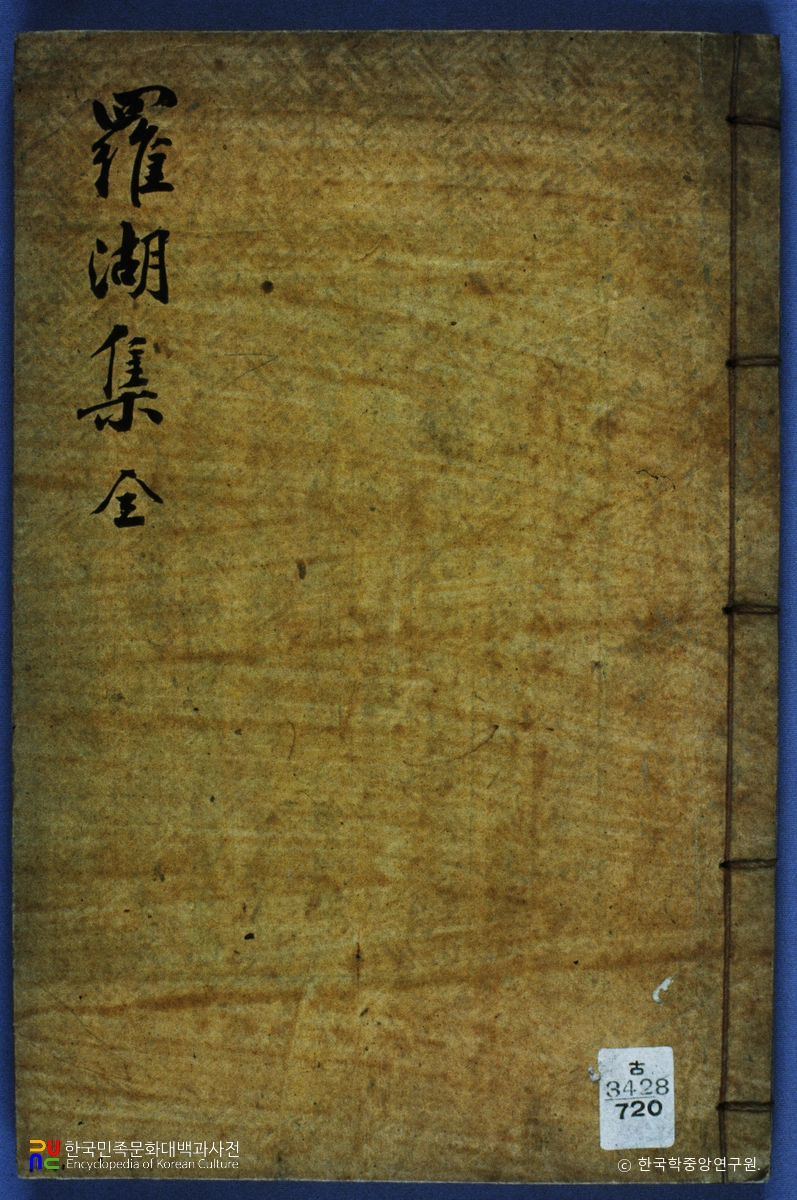 羅湖集 全
古
3428
720
한국민족문화대백과사전
Encyclopedia of Korean Culture
© 한국학중앙연구원.